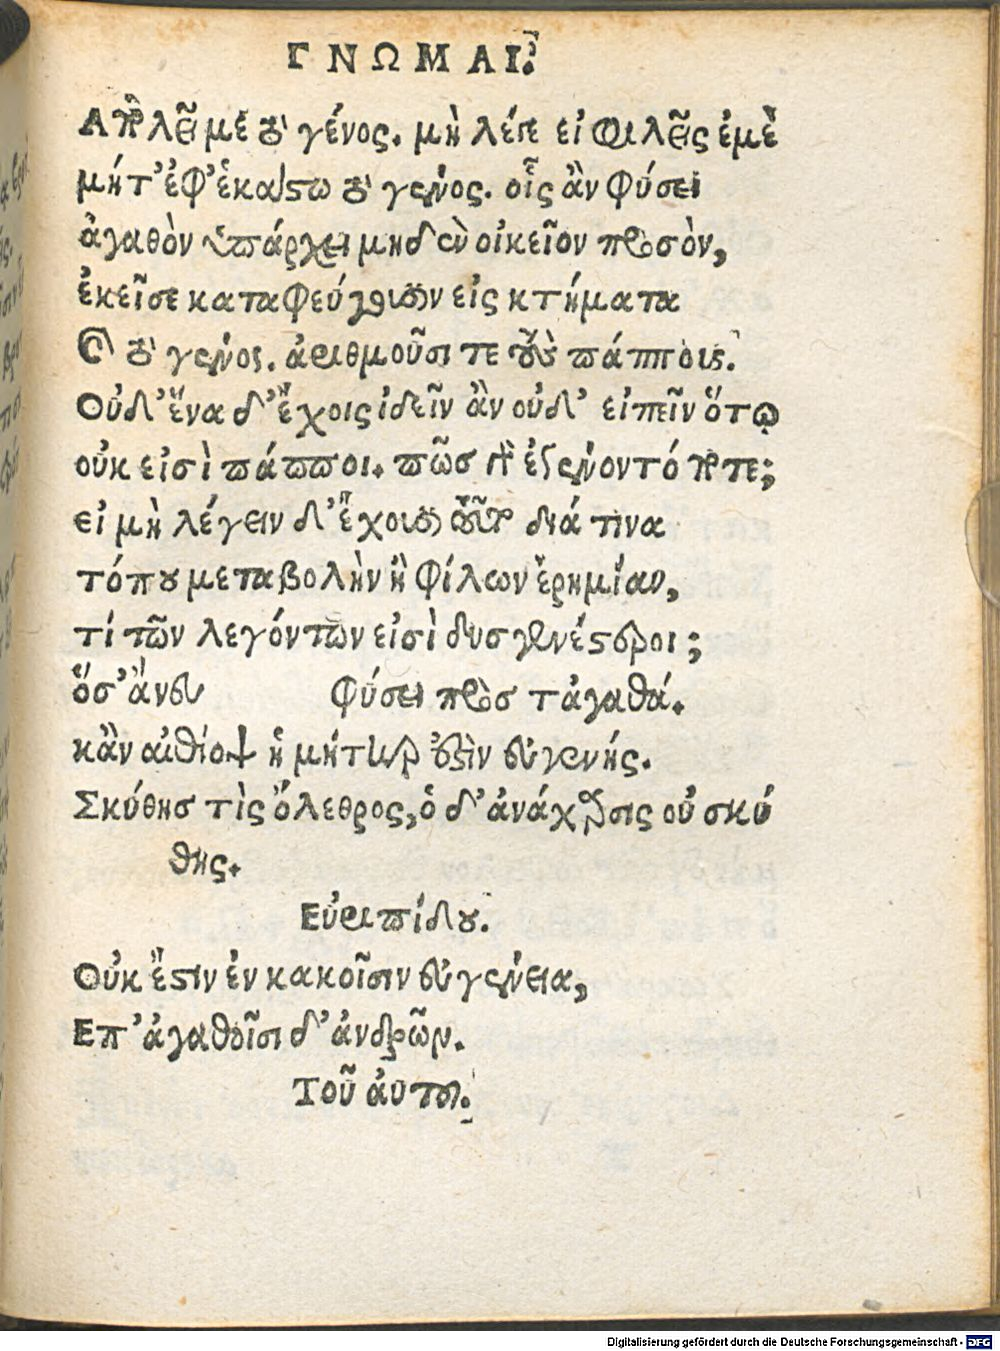 ΓΝΩΜΑΙ.
Απολεῖ με τὸ γένος. μὴ λέγε εἰ φιλεῖς ἐμὲ
μήτ' ἐφ' ἑκάστω τὸ γένος. οἷς ἂν φύσει
ἀγαθὸν ὑπάρχει μηδὲν οἰκεῖον προσὸν,
ἐκεῖσε καταφεύγουσιν εἰς κτήματα
καὶ τὸ γένος. ἀριθμοῦσι τε τοὺς πάπποις.
Οὐδ' ἕνα δ' ἔχοις ἰδεῖν ἂν οὐδ' εἰπεῖν ὅτῳ
οὐκ εἰσὶ πάπποι. πῶς γὰρ ἐγένοντό ποτε;
εἰ μὴ λέγειν δ' ἔχουσι τούτους διά τινα
τόπου μεταβολὴν ἢ φίλων ἐρημίαν,
τί τῶν λεγόντων εἰσὶ δυσγενέστεροι;
ὅσ' ἂν εὖ φύσει πρὸς τἀγαθά.
κἂν αἰθίοψ ἡ μήτηρ ἐστὶν εὐγενής.
Σκύθης τὶς ὄλεθρος, ὁ δ' ἀνάχαρσις οὐ σκύ
θης.
Εὐριπίδου.
Οὐκ ἔστιν ἐν κακοῖσιν εὐγένεια,
Επ' ἀγαθοῖσι δ' ἀνδρῶν.
Τοῦ ἀυτοῦ.
Digitalisierung gefördert durch die Deutsche Forschungsgemeinschaft - DFG